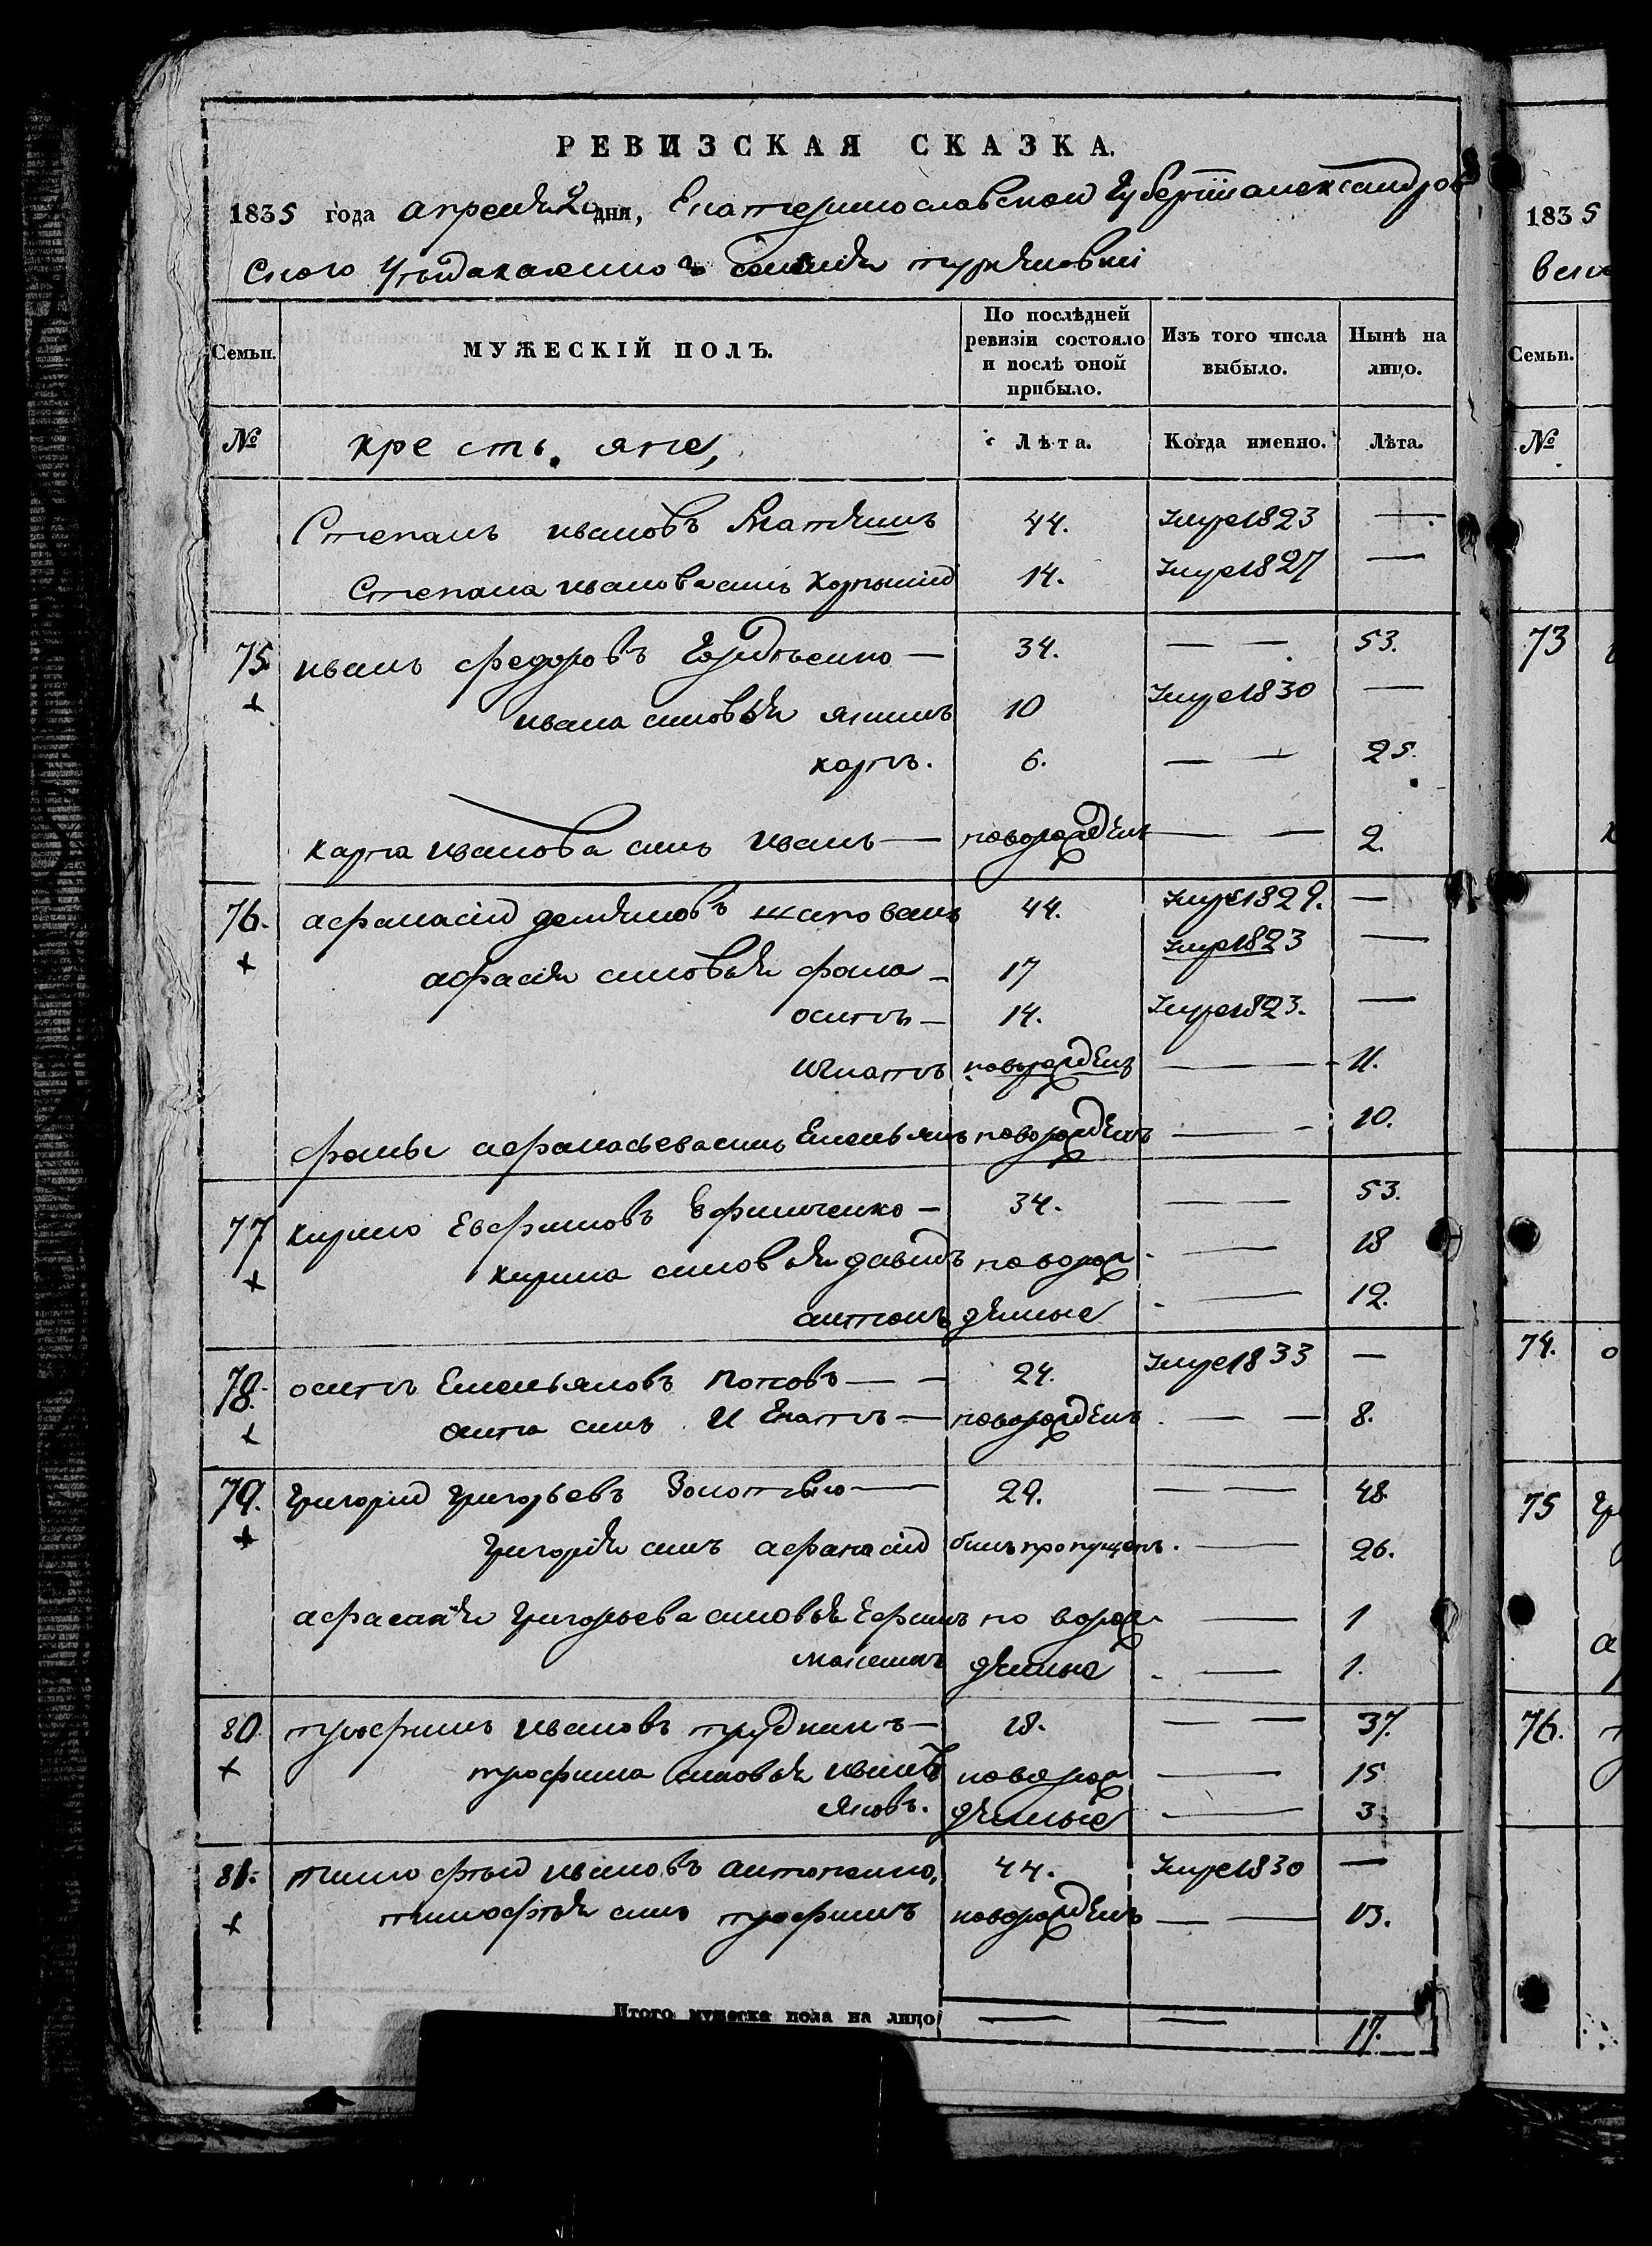 РЕВИЗСКАЯ СКАЗКА.
1835 года апреля 2 дня, Екатеринославской Губернiи александров
ского уезда казенного селения туркеновки
Семьи.
МУЖЕСКІЙ ПОЛЪ.
По послѣдней ревизіи состояло и послѣ оной прибыло.
Изъ того числа выбыло.
Нынѣ на лицо.
№ кресть. яне, Лѣта. Когда именно. Лѣта.
Степанъ ивановъ 44. умре 1823 —
Степана иванова синъ 14. умре 1827 —
75 иванъ федоровъ Гордѣенко — 34. — — 53.
ивана синовья якимъ 10 умре 1830 —
карпъ. 6. — — 25.
карпа иванова синъ иванъ — новорожденъ — — 2.
76. афанасiй демяновъ шаповалъ 44. умре 1829. —
афрасiя синовья фома — 17 умре 1823 —
осипъ — 14. умре 1823. —
игнатъ новорожденъ — 11.
фомы афанасьева синъ Емельянъ новорожденъ — 10.
77 кирило Евфимовъ Ефименко — 34. — — 53.
кирила синовья давидъ новорож — 18
антонъ денные — 12.
78. осипъ Емельяновъ поповъ — — 24. умре 1833 —
осипа синъ Игнатъ — новорожденъ. — — 8.
79. григорiй григорьевъ Золотько — 29. — — 48
григорiя синъ афанасiй билъ пропущенъ. — 26.
афанасiя григорьева синовья Ефимъ новорож — 1
максимъ денные — 1.
80. трофимъ ивановъ трудникъ — 18. — — 37.
трофима синовья иванъ новорож — 15
яковъ. денные — 3.
81. тимофѣй ивановъ антоненко, 44. умре 1830 —
тимофѣя синъ трофимъ новорожденъ — — 13.
Итого мужеска пола на лицо — — 17.
1835
Семьи.
№
73
74.
75
76.